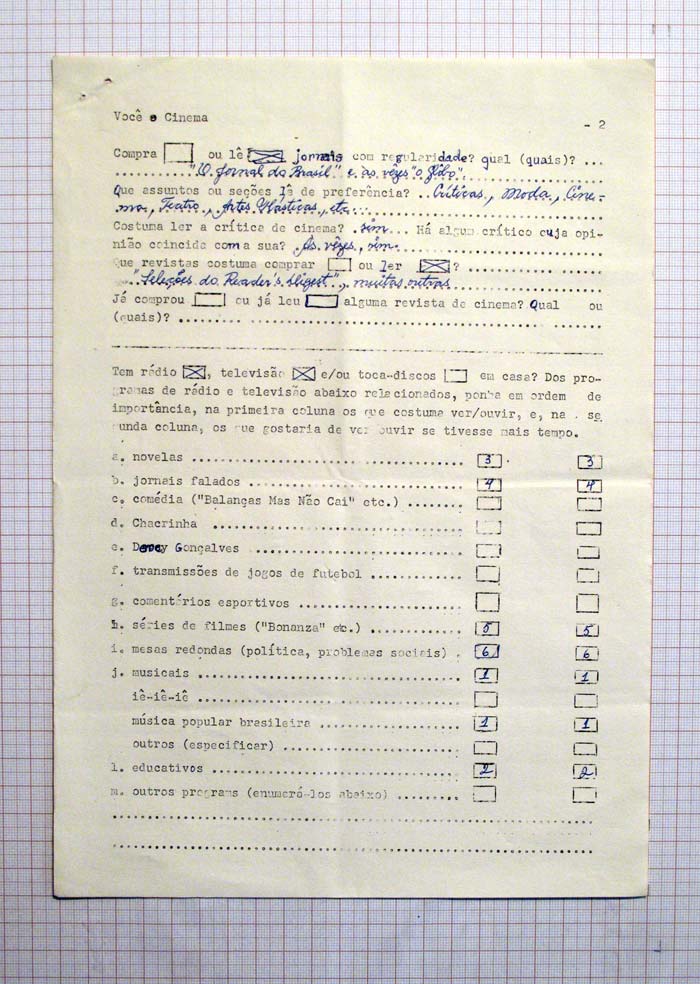 Você e Cinema
- 2
Compra ☐ ou lê ☒ jornais com regularidade? qual (quais)? ...
"O Jornal do Brasil" e às vêzes "o Globo".
Que assuntos ou seções lê de preferência? .. Críticas, Moda, Cine-
ma, Teatro, Artes Plásticas, etc...
Costuma ler a crítica de cinema? .sim... Há algum crítico cuja opi-
nião coincide com a sua? .Às vêzes, sim.
Que revistas costuma comprar ☐ ou ler ☒? ............
"Seleções do Reader's Digest", muitas outras
Já comprou ☐ ou já leu ☐ alguma revista de cinema? Qual ou
(quais)? ..............................................
Tem rádio ☒, televisão ☒ e/ou toca-discos ☐ em casa? Dos pro-
gramas de rádio e televisão abaixo relacionados, ponha em ordem de
importância, na primeira coluna os que costuma ver/ouvir, e, na . se
unda coluna, os que gostaria de ver ouvir se tivesse mais tempo.
a. novelas ........................................ 3 3
b. jornais falados ................................ 4 4
c. comédia ("Balanças Mas Não Cai" etc.) ........ ☐ ☐
d. Chacrinha ..................................... ☐ ☐
e. Dercy Gonçalves ............................... ☐ ☐
f. transmissões de jogos de futebol ............. ☐ ☐
g. comentários esportivos ........................ ☐ ☐
h. séries de filmes ("Bonanza" etc.) ............ 5 5
i. mesas redondas (política, problemas sociais) . 6 6
j. musicais ...................................... 1 1
iê-iê-iê ......................................... ☐ ☐
música popular brasileira ....................... 1 1
outros (especificar) ............................ ☐ ☐
l. educativos .................................... 2 2
m. outros programs (enumerá-los abaixo) ......... ☐ ☐